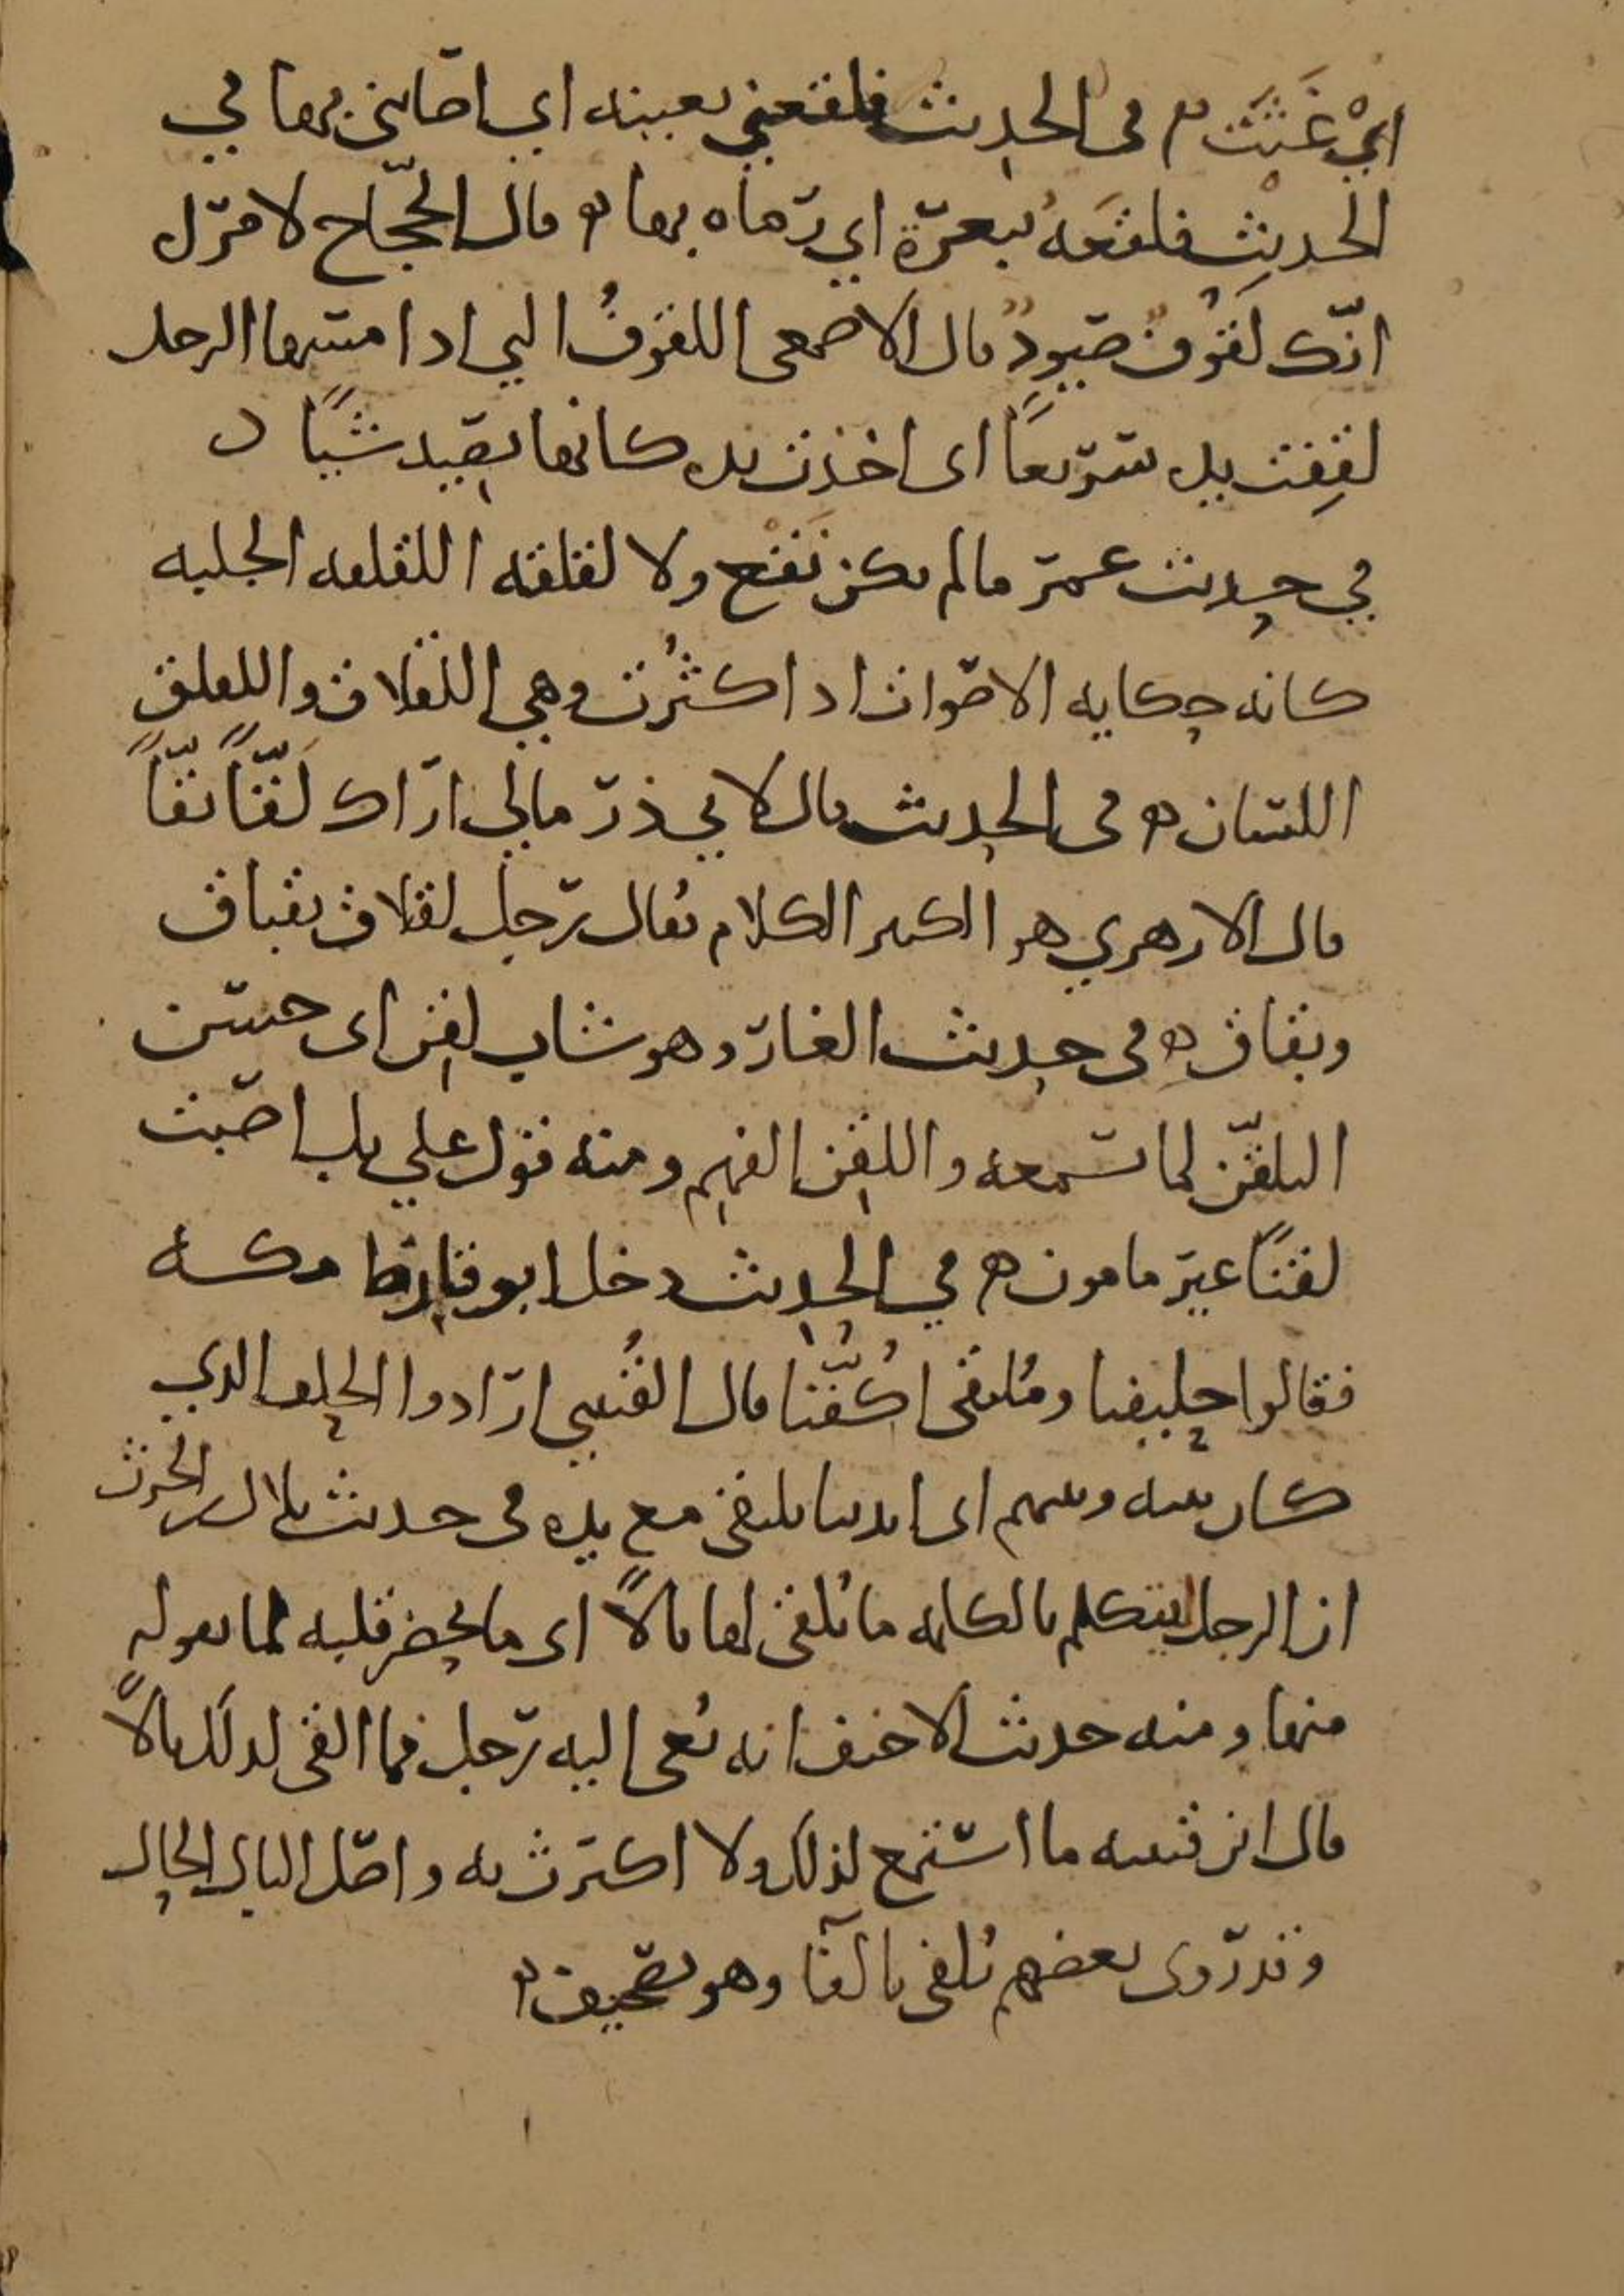 اي غَثَتْ ه في الحديث فلقعني بعينه اي اصابني بها في
الحديث فلقعه ببعرة اي رماه بها ه قال الحجاج لامرأ
انك لقوف صيود قال الاصمعي اللقوف التي اذا مسها الرجل
لقفت يده سريعا اي اخذت يده كانها تصيد شيئا ه
في حديث عمر ما لم يكن نقع ولا لقلقه اللقلقه الجلبه
كانه حكايه الاصوات اذا كثرت وهي اللقلاق واللقلق
اللسان ه في الحديث قال لابي ذر مالي اراك لقّا بقّا
قال الازهري هو الكثير الكلام يقال رجل لقلاق بقباق
وبقاق ه في حديث الغار وهو شاب لقن اي حسن
التلقن لما تسمعه واللقن الفهم ومنه قول علي بلى اصبت
لقنا غير مامون ه في الحديث دخل ابو قارظ مكه
فقالوا حليفنا وملتقى اكفنا قال القتيبي ارادوا الحلف الذي
كان بينه وبينهم اي ايدينا تلتقي مع يده في حديث بلال بن الحرث
ان الرجل ليتكلم بالكلمه ما يلقي لها بالا اي ما يحضر قلبه لما يقوله
منها ومنه حديث الاحنف انه نعي اليه رجل فما القى لذلك بالا
قال ابن قتيبه ما استمع لذلك ولا اكترث به واصل البال الحال
وقد روى بعضهم تلفي بالفا وهو تصحيف ه